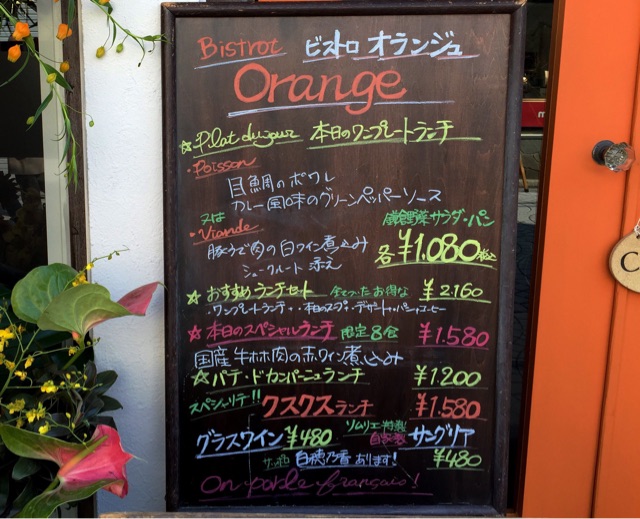 Bistrot ビストロ オランジュ
Orange
☆ Plat du jour 本日のワンプレートランチ
・Poisson
目鯛のポワレ
カレー風味のグリーンペッパーソース
又は
・Viande
鎌倉野菜サラダ・パン
豚うで肉の白ワイン煮込み
シュークルート添え
各¥1.080税込
☆ おすすめランチセット 全てついたお得な ¥2.160
・ワンプレートランチ・本日のスープ・デザート・パン・コーヒー
☆ 本日のスペシャルランチ 限定8食 ¥1.580
国産牛ホホ肉の赤ワイン煮込み
☆ パテ・ド・カンパーニュランチ ¥1.200
スペシャリテ!! クスクスランチ ¥1.580
グラスワイン ¥480 ソムリエ特製 自家製 サングリア ¥480
サッポロ 白穂乃香 あります!
On parle français!
C